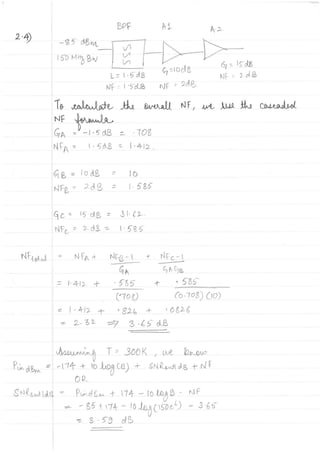 BPF A1 A2
2.4)
-85 dBm
150 MHz BW
L = 1.5 dB G = 10dB G = 15 dB
NF = 1.5dB NF = 2dB NF = 2 dB
To calculate the overall NF, we use the cascaded
NF formula
GA = -1.5dB = .708
NFA = 1.5dB = 1.412
GB = 10 dB = 10
NFB = 2dB = 1.585
GC = 15 dB = 31.62
NFC = 2 dB = 1.585
NFtotal = NFA + NFB-1 + NFC-1
GA GAGB
= 1.412 + .585 + .585
(.708) (0.708) (10)
= 1.412 + .826 + .0826
= 2.32 => 3.65 dB
Assuming T = 300K, we know
Pin dBm = -174 + 10 log(B) + SNRout dB + NF
OR
SNRout|dB = Pin dBm + 174 - 10 log B - NF
= -85 + 174 - 10 log (150e6) - 3.65
= 3.59 dB